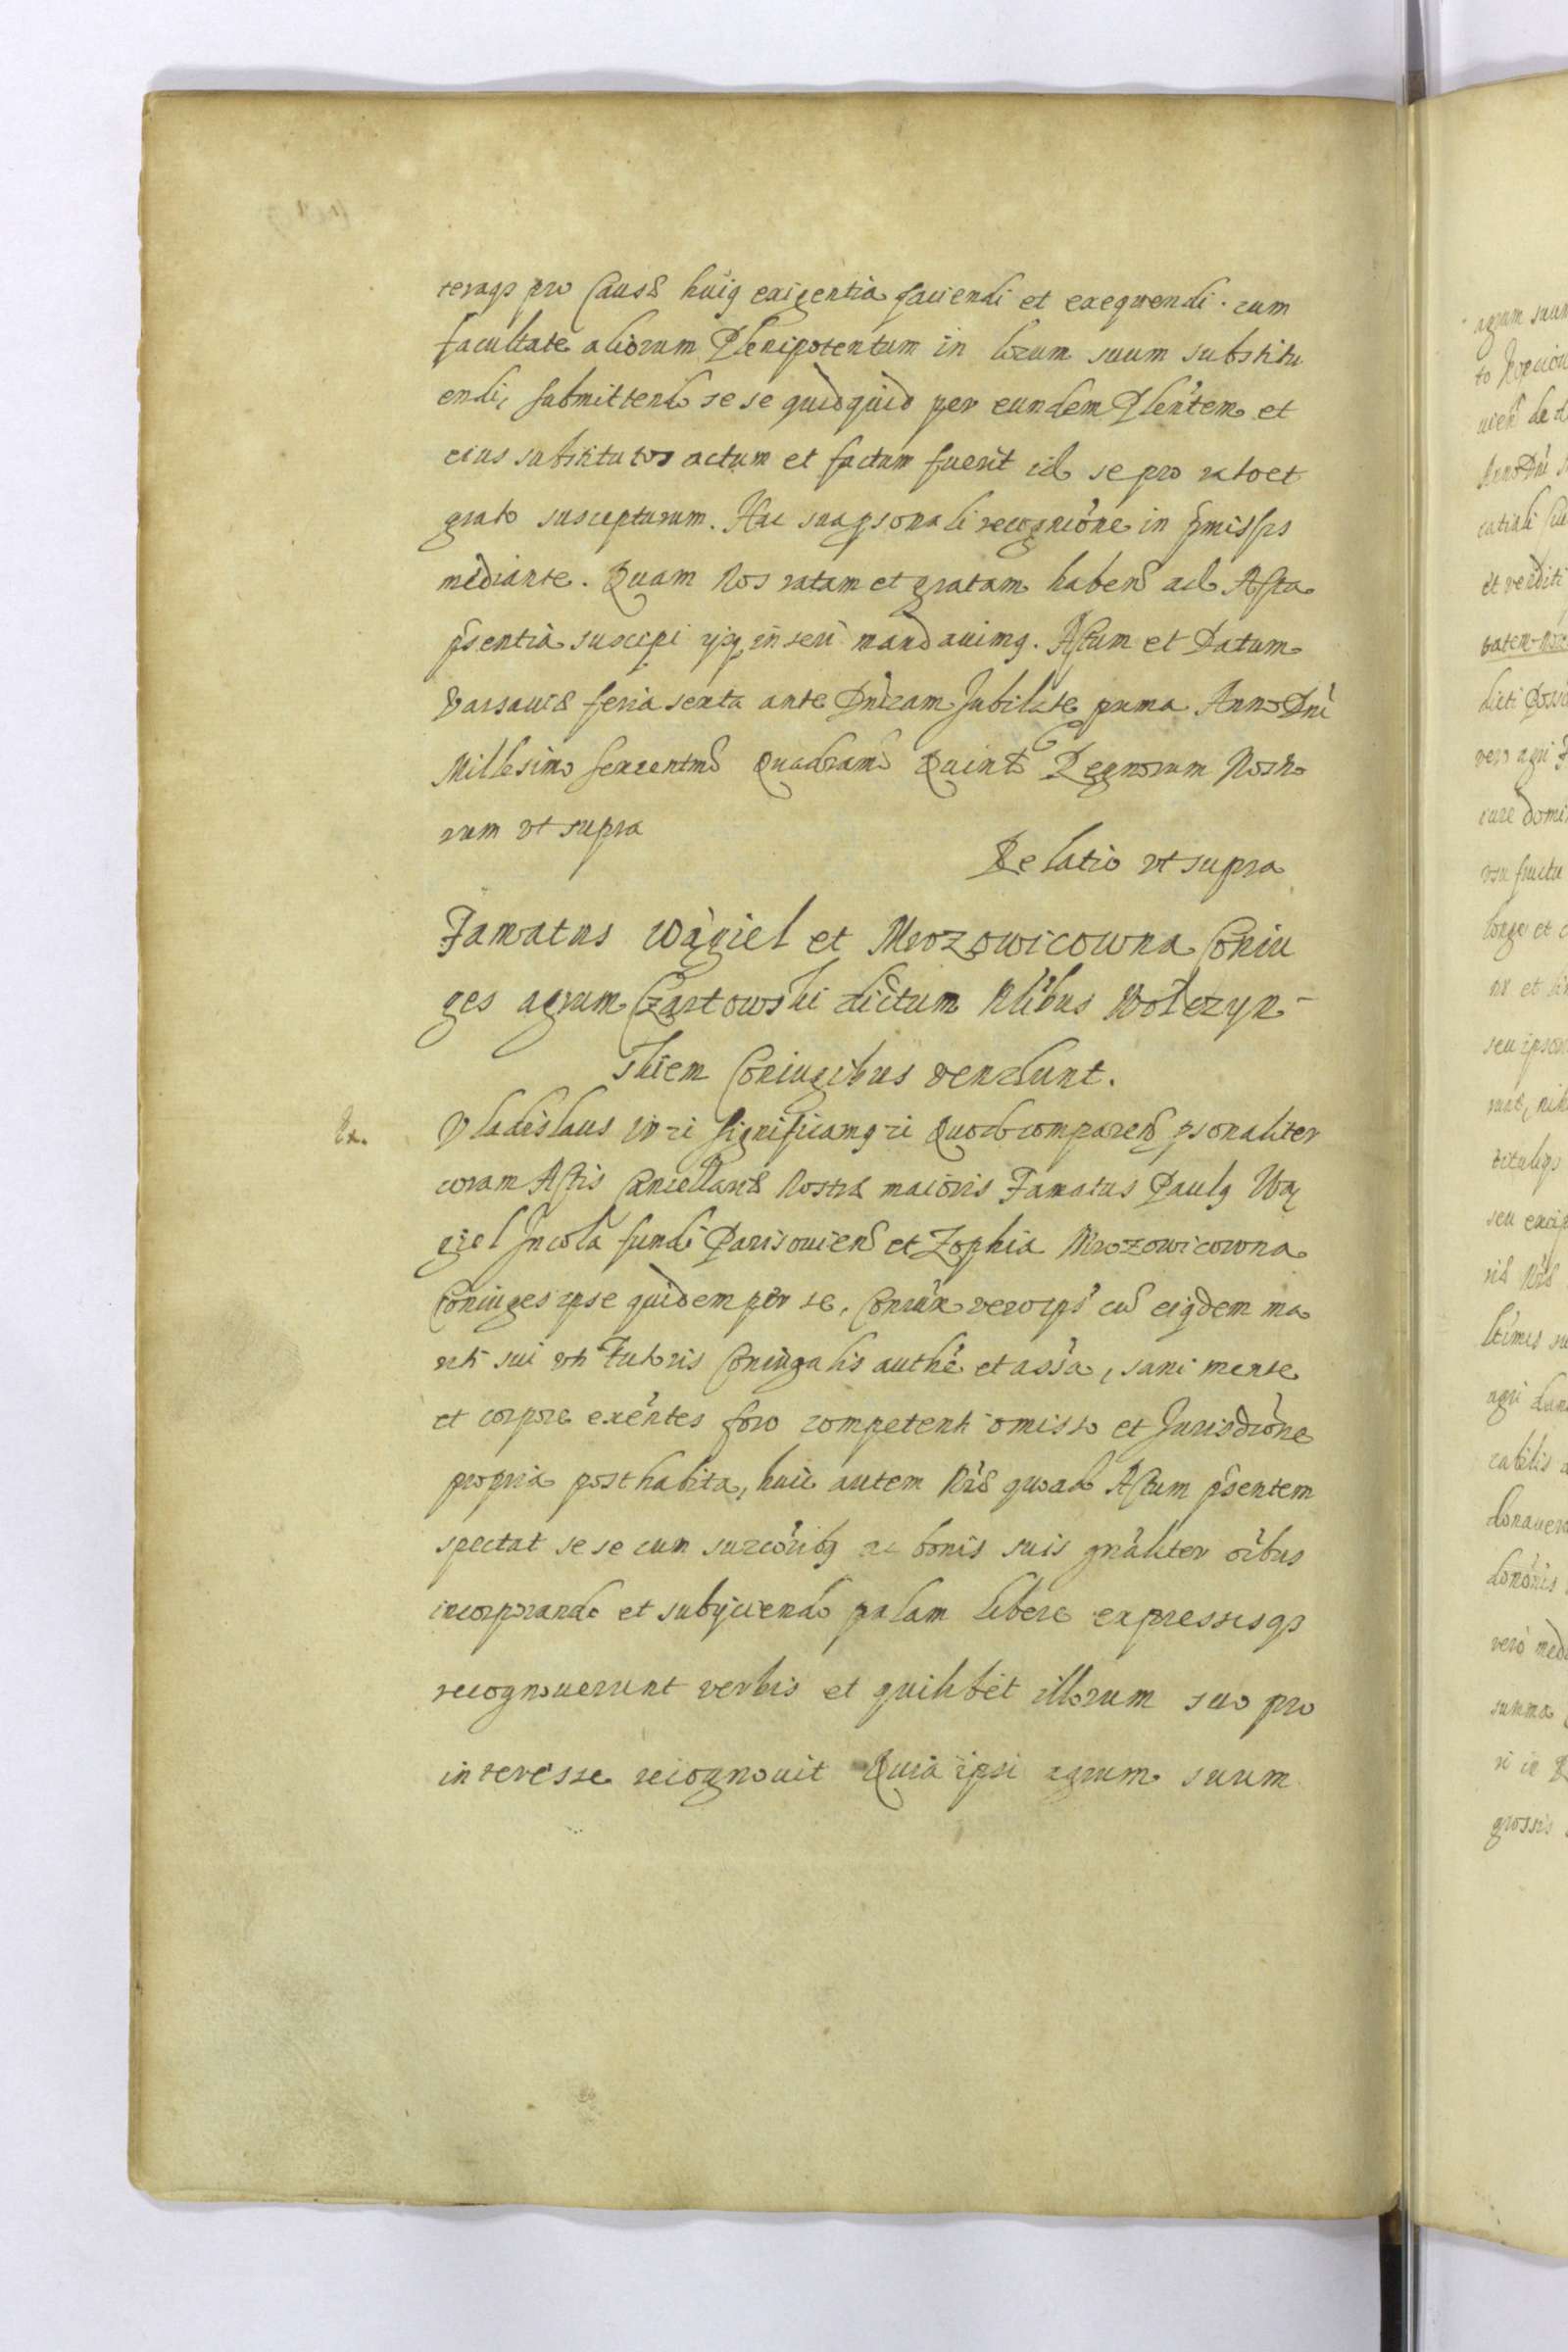 teraqз pro Causæ huiꝯ exigentia faciendi et exequendi. cum
facultate aliorum Plenipotentum in locum suum substitu
endi, submittendo se se quidquid per eundem Plen̄tem et
eius substitutos actum et factum fuerit id se pro rato et
grato suscepturum. Hac sua ꝑsonali recogniõne in p̃missis
mediante. Quam Nos ratam et gratam habenš ad Acta
p̃sentia suscipi ijsꝗ inseri mandauimꝯ. Actum et Datum
Varsauiæ feria sexta ante Dñicam Jubilate prima Anno Dñi
Millesimo sexcentmo Quadramo Quinto Regnorum Nostro
rum vt supra
Relatio vt supra
Famatus Wągiel et Mrozowicowna Coniu
ges agrum Czartowski dictum Nlibus Wołczyn-
skiem Coniugibus vendunt.
Ex.
Vladislaus IV ꝛi Significamꝯ ꝛi Quod comparenš ꝑsonaliter
coram Actis Cancellariæ Nostræ maioris Famatus Paulꝯ Wą
giel Incola fundi Parisouienš et Zophia Mrozowicowna
Coniuges ipse quidem per se, Coniux vero ips̃ cũ eiꝯdem ma
riti sui vti Tutoris Coniugalis authẽ et assã, sani mente
et corpore exẽntes foro competenti omisso et Jurisdiõne
propria posthabita, huic autem Nræ quoad Actum p̃sentem
spectat se se cum succõribꝯ ac bonis suis gñaliter oĩbus
incorporando et subijciendo palam libere expressisqз
recognouerunt verbis et quilibet illorum suo pro
interesse recognouit Quia ipsi agrum suum